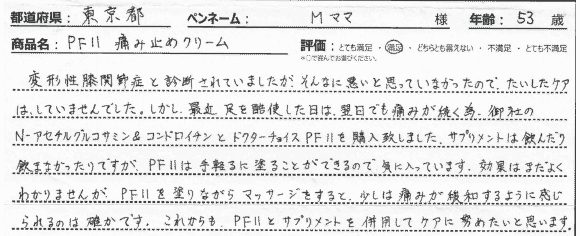 都道府県：東京都 ペンネーム：Mママ 様 年齢：53 歳
商品名：PFⅡ 痛み止めクリーム 評価：とても満足・満足・どちらとも言えない・不満足・とても不満足
*○で囲んでお選びください。
変形性膝関節症と診断されていましたが、そんなに悪いと思っていなかったので、たいしたケア
は、していませんでした。しかし、最近 足を酷使した日は、翌日でも痛みが続く為、御社の
N-アセチルグルコサミン&コンドロイチンとドクターチョイスPFⅡを購入致しました。サプリメントは飲んだり
飲まなかったりですが、PFⅡは手軽るに塗ることができるので気に入っています。効果はまだよく
わかりませんが、PFⅡを塗りながらマッサージをすると、少しは痛みが緩和するように感じ
られるのは確かです。これからも、PFⅡとサプリメントを併用してケアに努めたいと思います。